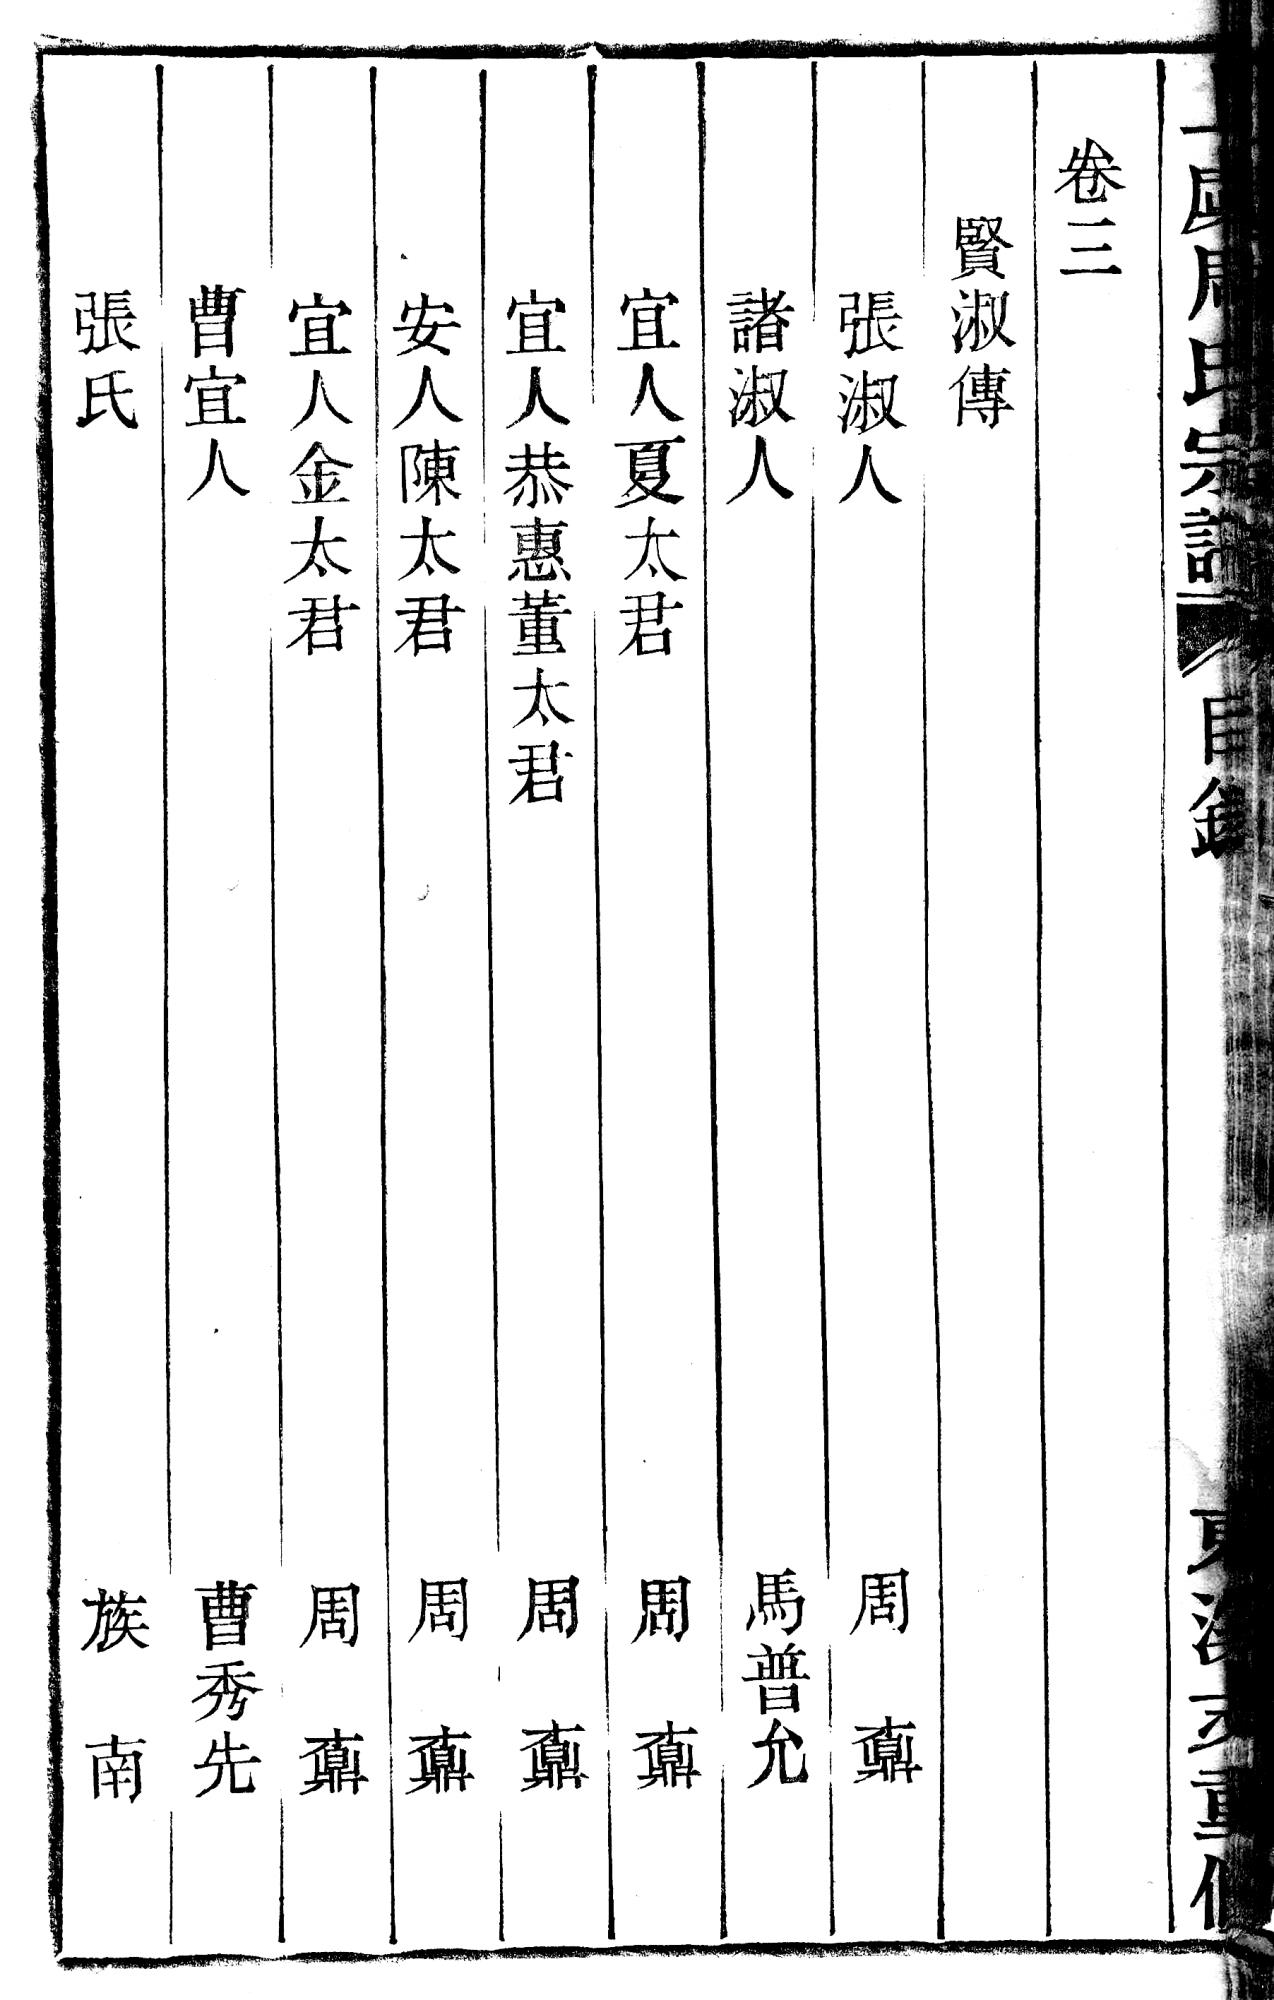 周氏宗譜 目錄 重修
卷三
賢淑傳
張淑人 周鼒
諸淑人 馬普允
宜人夏太君 周鼒
宜人恭惠董太君 周鼒
安人陳太君 周鼒
宜人金太君 周鼒
曹宜人 曹秀先
張氏 族南